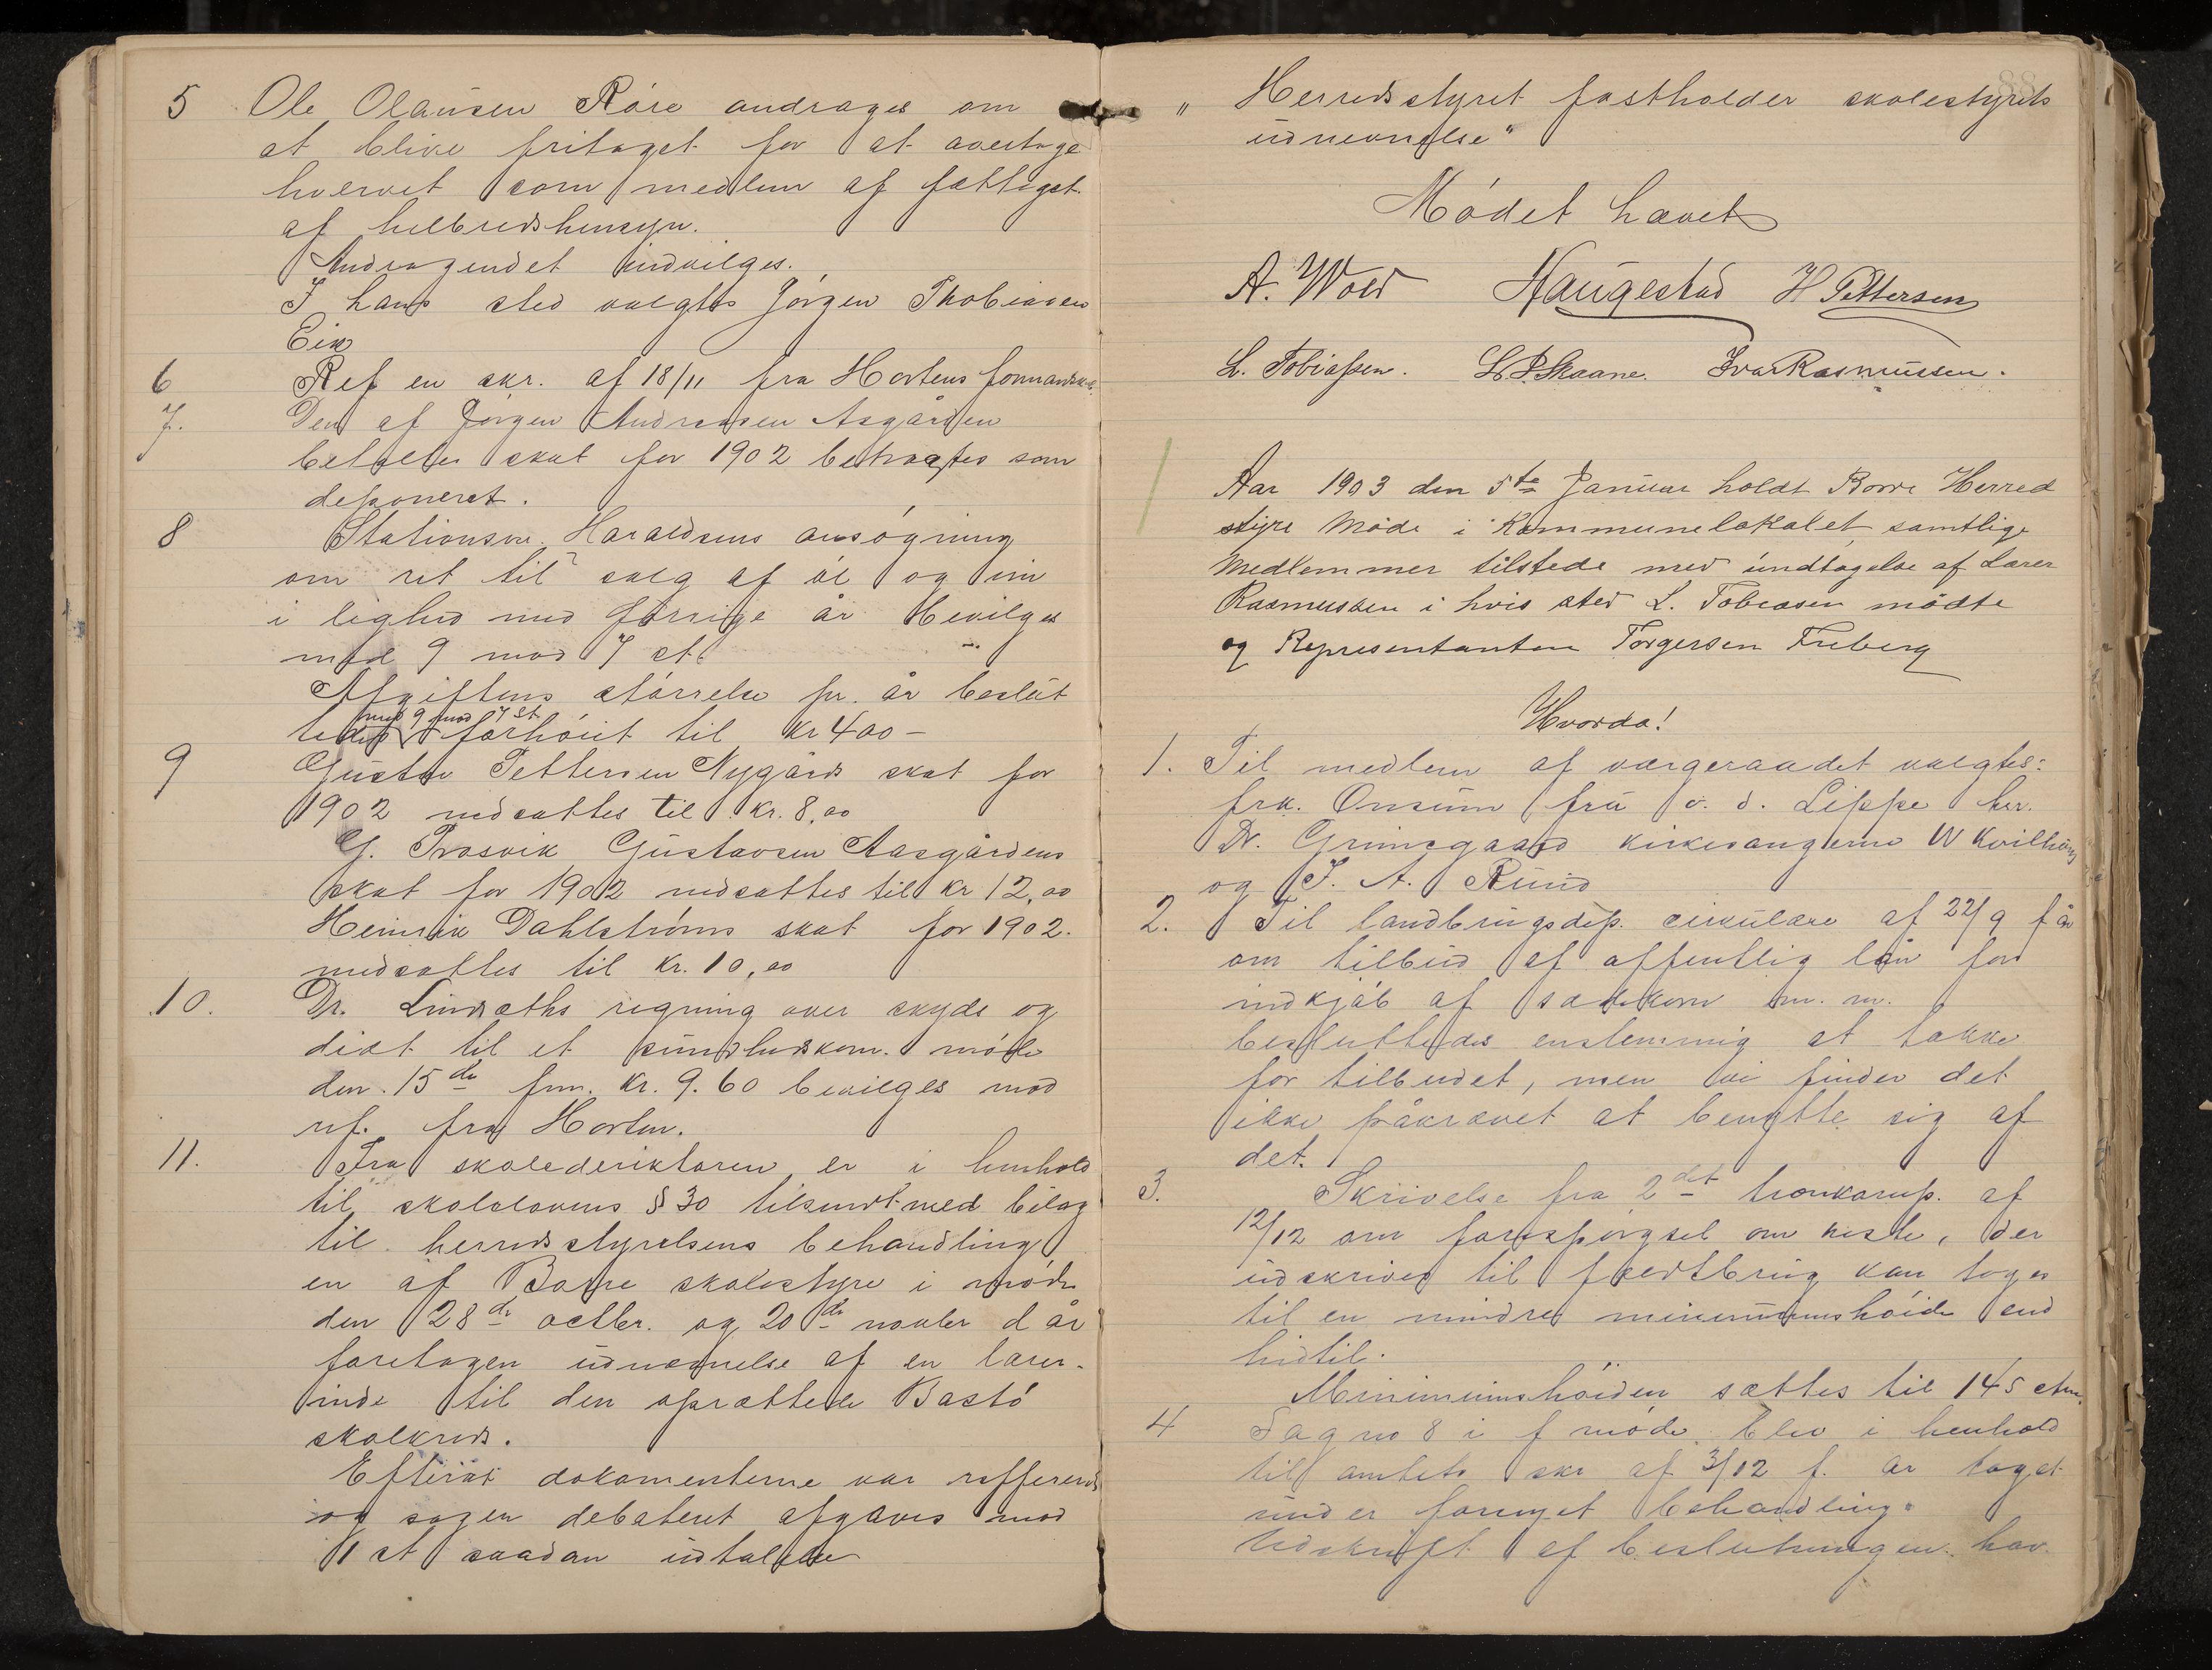 5 Ole Olausen Råre andrages om
at blive fritaget for at overtage
hvervet som medlem af fattigst.
af helbredshensyn.
Andragendet indvilges.
I hans sted valgtes Jörgen Thobiasen
Eik
6 Ref en skr. af 18/11 fra Hortens formandsk.
7. Den af Jörgen Andreasen Asgården
betalte skat for 1902 betragtes som
deponeret.
8 Stationsm. Haraldsens ansögning
om ret til salg af öl og vin
i lighed med forrige år bevilges
med 9 mod 7 st.
Afgiftens størrelse pr. år beslut
med 9 mod 7 st.
tedes forhöiet til Kr 400 –
9 Gustav Pettersen Nygårds skat for
1902 nedsattes til Kr. 8,00
G. Prosvik Gustavsen Aasgårdens
skat for 1902 nedsattes til Kr 12,00
Heinrik Dahlströms skat for 1902.
nedsattes til Kr. 10,00
10. Dr. Lindseths regning over skyds og
diæt til et sundhedskom. möde
den 15de fm. Kr. 9.60 bevilges mod
ref. fra Horten.
11. Fra skoledirektøren er i henhold
til skolelovens § 30 tilsendt med bilag
til herredsstyrelsens behandling
en af Borre skolestyre i möde
den 28de octbr. og 20de novbr d år
foretagen udnævnelse af en lærer-
inde til den oprettede Bastö
skolkreds.
Efterat dokumenterne var reffereret
og sagen debateret afgaves mod
1 st saadan udtalelse
" Herredsstyret fastholder skolestyrets
udnævnelse"
Mödet hævet
A. Wold Haugestad H Pettersen
L. Tobiassen. L. P. Skaane. Ivar Rasmussen.
Aar 1903 den 5te Januar holdt Borre Herred
styre Möde i Kommunelokalet, samtlige
Medlemmer tilstede med undtagelse af Lærer
Rasmussen i hvis sted L. Tobiasen mödte
og Representanten Torgersen Freberg
Hvorda!
1. Til medlem af værgeraadet valgtes:
frk. Onsum fru v. d. Lippe her.
Dr. Grimsgaard kirkesangerne W Kvilhaug
og J. A. Rund
2. Til landbrugsdep. cirkulære af 22/9 f år
om tilbud af offentlig lån for
indkjøb af sædekorn m. m.
besluttedes enstemmig at takke
for tilbudet, men vi finder det
ikke påkrævet at benytte sig af
det.
3. Skrivelse fra 2det trænkorps. af
12/12 om forespörgsel om heste, der
udskrives til feltbrug kan tages
til en mindre minimumshöide end
hidtil.
Minimumshöiden sættes til 145 ctm.
4 Sag no 8 i f möde blev i henhold
til amtets skr af 3/12 f. år taget
under fornyet behandling.
Udskrift af beslutningen hav.